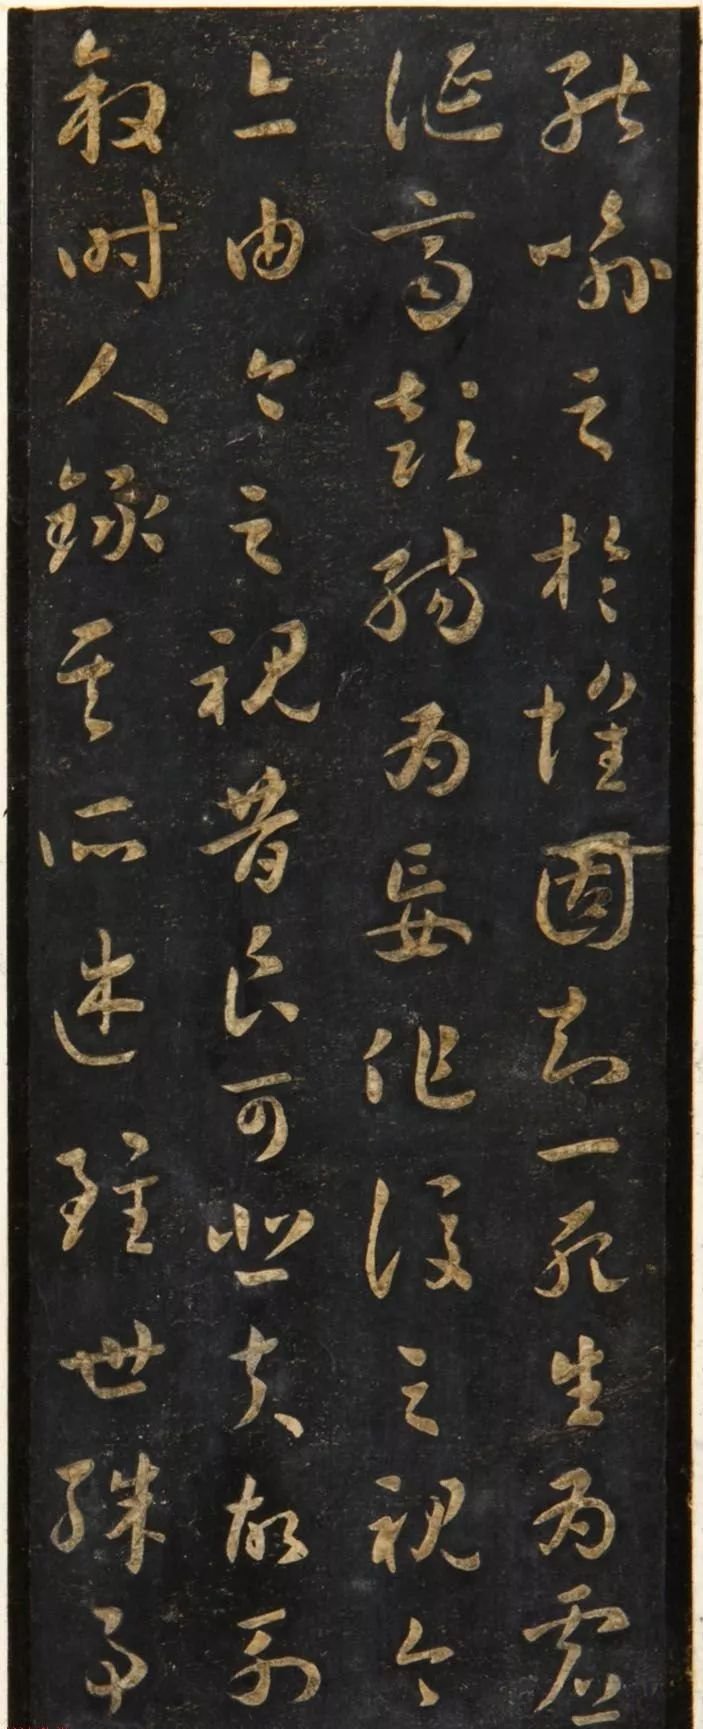 能喻之於懷固知一死生為虛
誕齊彭殤為妄作後之視今
亦由今之視昔良可悲夫故列
敘時人錄其所述雖世殊事